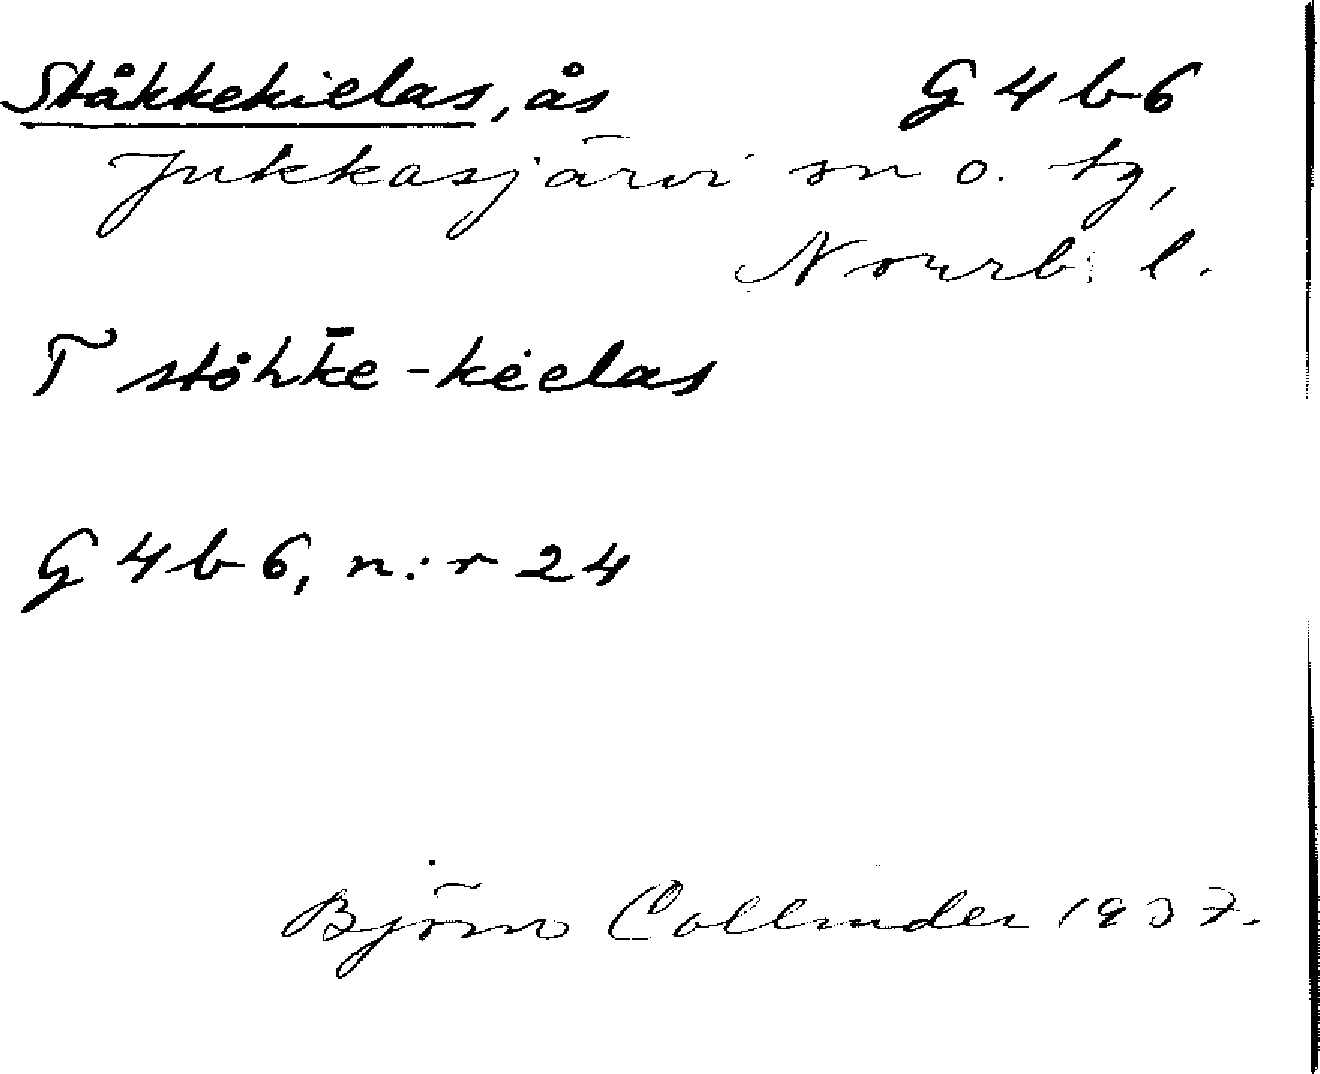 Ståkkekielas, ås G 4 b 6
Jukkasjärvi sn o. tg,
Norrb. l.
T ståhk̄e-kėelas
G 4 b 6, n:r 24
Björn Collinder 1937.